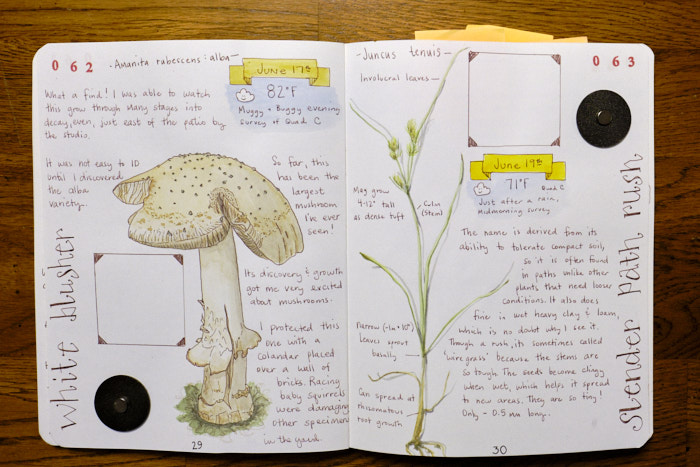 062
-Amanita rubescens: alba-
June 17th
82°F
Muggy + Buggy evening
Survey of Quad C
What a find! I was able to watch
this grow through many stages into
decay, even, just east of the patio by
the studio.
It was not easy to ID
until I discovered
the alba
variety.
So far, this
has been the
largest
mushroom
I've ever
seen!
Its discovery & growth
got me very excited
about mushrooms.
I protected this
one with a
colandar placed
over a wall of
bricks. Racing
baby squirrels
were damaging
other specimens
in the yard.
white blusher
29
-Juncus tenuis-
063
Involucral leaves
June 19th
71°F
Quad C
Just after a rain,
Midmorning survey
May grow
4-12" tall
as dense tuft
Culm
(stem)
The name is derived from its
ability to tolerate compact soil,
so it is often found
in paths unlike other
plants that need looser
conditions. It also does
fine in wet heavy clay & loam,
which is no doubt why I see it.
Though a rush, its sometimes called
'wiregrass' because the stems are
so tough. The seeds become clingy
when wet, which helps it spread
to new areas. They are so tiny!
Only ~ 0.5 mm long.
Narrow
Leaves sprout
basally
Can spread at
rhizomatous
root growth
Slender path rush
30